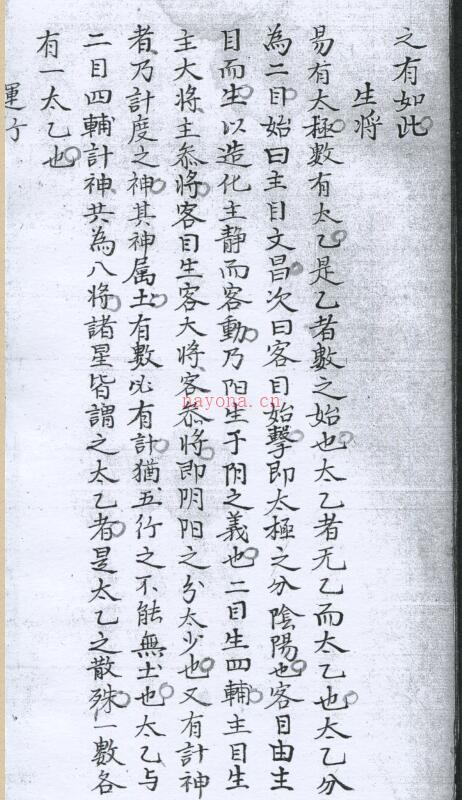 之有如此
生将
易有太極數有太乙是乙者數之始也太乙者无乙而太乙也太乙分
為二目始曰主目文昌次曰客目始擊即太極之分陰陽也客目由主
目而生以造化主静而客動乃阳生于阴之義也二目生四輔主目生
主大将主叅将客目生客大将客叅将即阴阳之分太少也又有計神
者乃計度之神其神属土有數必有計猶五行之不能無土也太乙与
二目四輔計神共為八将諸星皆謂之太乙者是太乙之散殊一數各
有一太乙也
運行
nayona.cn